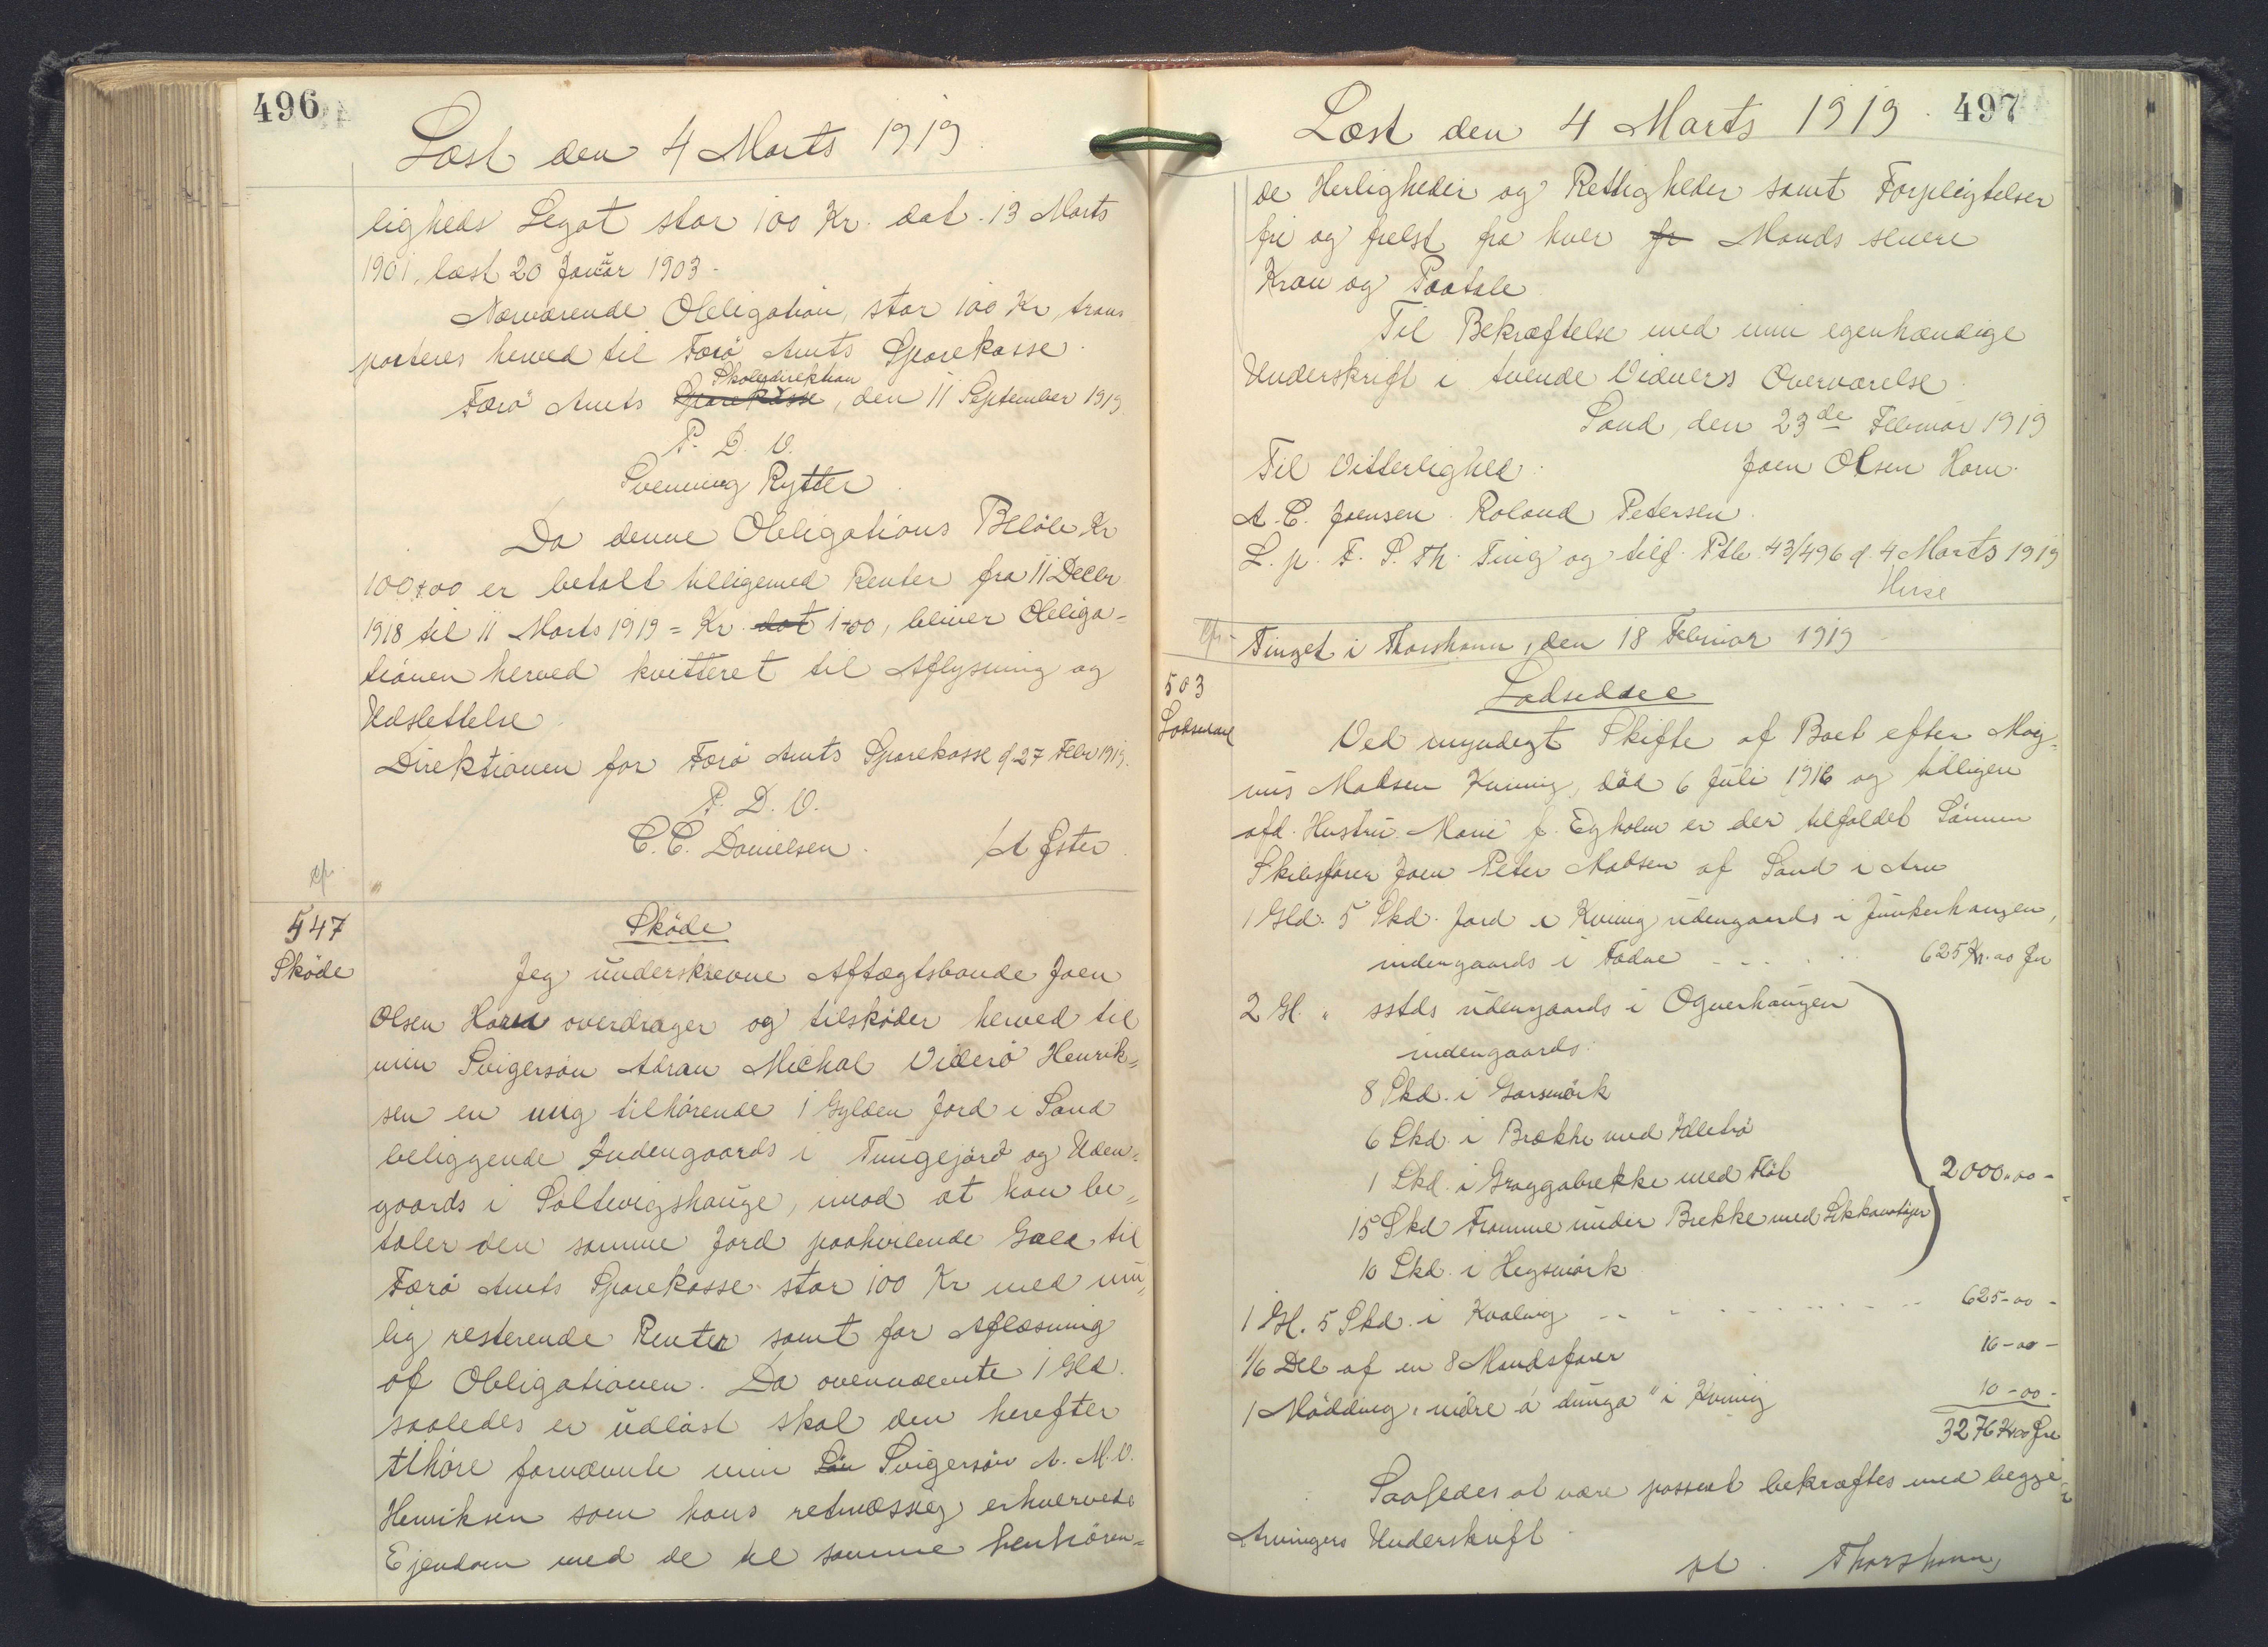 496
Læst den 4 Marts 1919.
ligheds Legat stor 100 Kr. dat. 13 Marts
1901, læst 20 Januar 1903.
Nærværende Obligation, stor 100 Kr, trans-
porteres herved til Færø Amts Sparekasse.
Skoledirektion
Færø Amts Sparekasse, den 11 September 1919
P. D. V.
Svenning Rytter
Da denne Obligations Beløb Kr
100,00 er betalt tilligemed Renter fra 11 Decbr
1918 til 11 Marts 1919 = Kr. dat 1-00, bliver Obliga-
tionen herved kvitteret til Aflysning og
Udslettelse.
Direktionen for Færø Amts Sparekasse d 27 Febr 1919.
P. D. V.
C. C. Danielsen. /A Øster.
cfr
547
Sköde
Sköde
Jeg underskrevne Aftægtsbonde Joen
Olsen Horn overdrager og tilsköder herved til
min Svigersön Abran Michal Viderö Henrik-
sen en mig tilhörende 1 Gylden Jord i Sand
beliggende Indengaards i Tungejörd og Uden-
gaards i Saltvigshauge, imod at han be-
taler den samme Jord paahvilende Gæld til
Færö Amts Sparekasse stor 100 Kr med mu-
lig resterende Renter samt for Aflæsning
af Obligationen. Da ovennævnte 1 Gld.
saaledes er udlöst skal den herefter
tilhöre fornævnte min Sön Svigersön A. M. V.
Henriksen som hans retmæssig erhvervede
Ejendom med de til samme henhören-
497
Læst den 4 Marts 1919.
de Herligheder og Rettigheder samt Forpligtelser
fri og frelst fra hver fr Mands senere
Krav og Paatale
Til Bekræftelse med min egenhændige
Underskrift i tvende Vidners Overværelse.
Sand, den 23de Februar 1919
Til Vitterlighed. Joen Olsen Horn.
A. C. Joensen. Roland Petersen.
L. p. F. S. Th. Ting og tilf. Ptb. 43/496 d. 4 Marts 1919
cfr. Tinget i Thorshavn, den 18 Februar 1919
503
Lodseddel
Lodseddel
Ved myndigt Skifte af Boet efter Mag-
nus Madsen Kvinnig, död 6 Juli 1916 og tidligere
afd. Hustru Marie f. Egholm er der tilfaldet Sönnen
Skibsförer Joen Peter Madsen af Sand i Arv
1 Gld. 5 Skd. Jord i Kvinnig udengaards i Junkerhaugen,
indengaards i Tadne - - - - 625 Kr. 00 Øre
2 Gl. " sstds udengaards i Ognerhaugen
indengaards.
8 Skd. i Garsmörk
6 Skd. i Brække med Idletrö
1 Skd. i Graggabrekke med Flöt
2000,00 -
15 Skd Framme under Brekke med
10 Skd. i Hegsmörk
1 Gl. 5 Skd. i Kvalvig - - - - - 625-00 -
1/6 Del af en 8 Mandsfarer 16-00 -
1 Mödding "nidre á dunga" i Kvinnig 10-00 -
3276 Kr 00 Øre
Saaledes at være passeret bekræftes med begge
Arvingers Underskrift.
pt. Thorshavn,